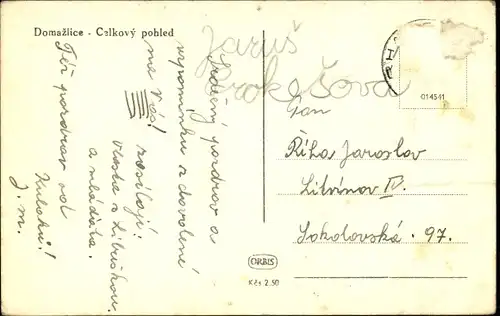 Domažlice - Celkový pohled
Jaruš
Prokešová
Srdečný pozdrav a
vzpomínku z dovolené
na Vás!
zasílají:
Vlasta s Libuškou
a mláďata.
Též pozdrav od
J. m.
Pan
Říha Jaroslav
Litvínov IV.
Sokolovská · 97.
014541
ORBIS
Kčs 2.50